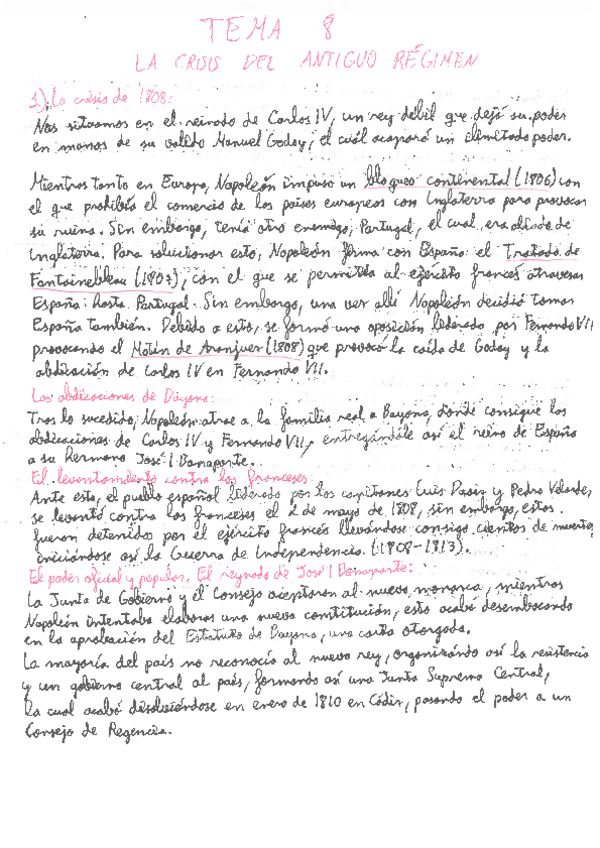 TEMA 8
LA CRISIS DEL ANTIGUO RÉGIMEN
1) La crisis de 1808:
Nos situamos en el reinado de Carlos IV, un rey débil que dejó su poder
en manos de su valido Manuel Godoy, el cuál acaparó un ilimitado poder.
Mientras tanto en Europa, Napoleón impuso un bloqueo continental (1806) con
el que prohibía el comercio de los países europeos con Inglaterra para provocar
su ruina. Sin embargo, tenía otro enemigo, Portugal, el cual era aliado de
Inglaterra. Para solucionar esto, Napoleón firma con España el Tratado de
Fontainebleau (1807), con el que se permitía al ejército francés atravesar
España hasta Portugal. Sin embargo, una vez allí Napoleón decidió tomar
España también. Debido a esto, se formó una oposición liderado por Fernando VII
provocando el Motín de Aranjuez (1808) que provocó la caída de Godoy y la
abdicación de Carlos IV en Fernando VII.
Las abdicaciones de Bayona:
Tras lo sucedido, Napoleón atrae a la familia real a Bayona, donde consigue las
abdicaciones de Carlos IV y Fernando VII, entregándole así el reino de España
a su hermano José I Bonaparte.
El levantamiento contra los franceses:
Ante esto, el pueblo español liderado por los capitanes Luis Daoiz y Pedro Velarde,
se levantó contra los franceses el 2 de mayo de 1808, sin embargo, estos
fueron detenidos por el ejército francés llevándose consigo cientos de muertes
iniciándose así la Guerra de Independencia. (1808-1813).
El poder oficial y popular. El reynado de José I Bonaparte:
La Junta de Gobierno y el Consejo aceptaron al nuevo monarca, mientras
Napoleón intentaba elaborar una nueva constitución, esto acabó desembocando
en la aprobación del Estatuto de Bayona, una carta otorgada.
La mayoría del país no reconocía al nuevo rey, organizándo así la resistencia
y un gobierno central al país, formando así una Junta Suprema Central,
la cual acabó disolviéndose en enero de 1810 en Cádiz, pasando el poder a un
Consejo de Regencia.